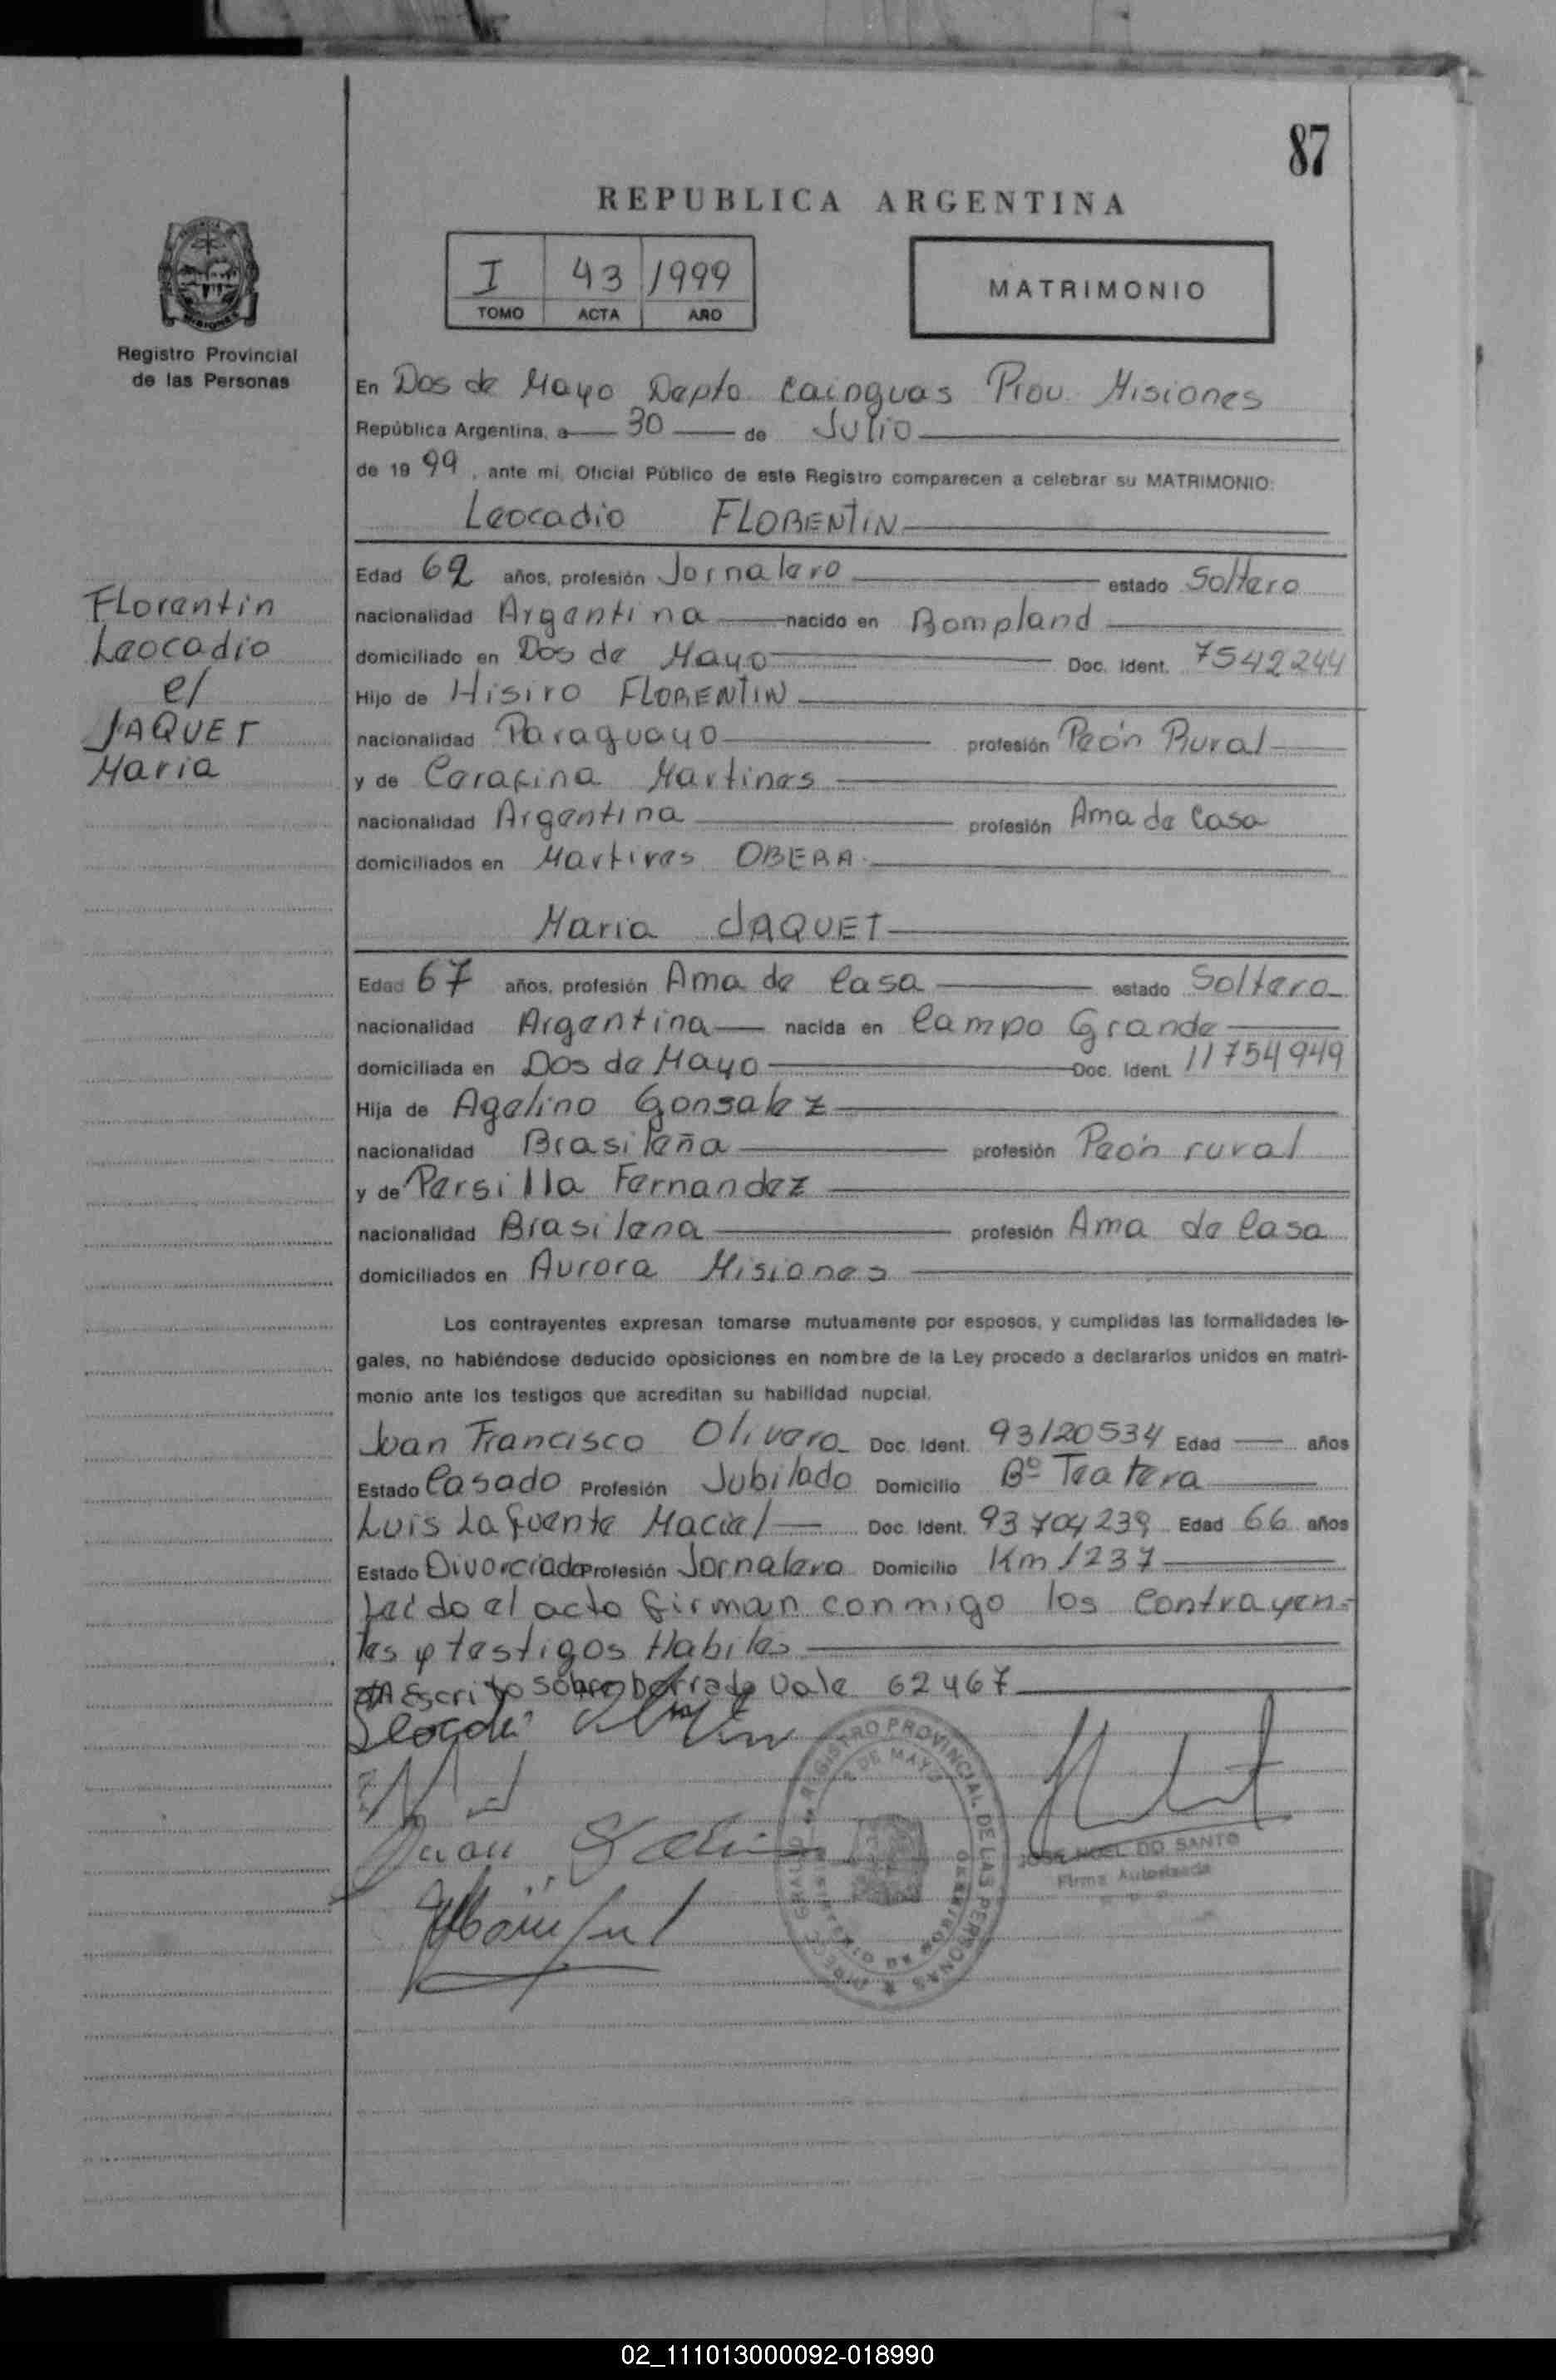 87
REPUBLICA ARGENTINA
I 43 1999
TOMO ACTA AÑO
MATRIMONIO
Registro Provincial
de las Personas
En Dos de Mayo Depto. Cainguas Prov. Misiones
República Argentina, a 30 de Julio
de 19 99, ante mi, Oficial Público de este Registro comparecen a celebrar su MATRIMONIO:
Leocadio FLORENTIN
Edad 62 años, profesión Jornalero estado Soltero
nacionalidad Argentina nacido en Bompland
domiciliado en Dos de Mayo Doc. Ident. 7542244
Hijo de Hisiro FLORENTIN
nacionalidad Paraguayo profesión Peón Rural
y de Cerafina Martines
nacionalidad Argentina profesión Ama de Casa
domiciliados en Martires OBERA.
Florentin
Leocadio
c/
JAQUET
Maria
Maria JAQUET
Edad 67 años, profesión Ama de Casa estado Soltera
nacionalidad Argentina nacida en Campo Grande
domiciliada en Dos de Mayo Doc. Ident. 11754949
Hija de Agelino Gonsalez
nacionalidad Brasileña profesión Peón rural
y de Persilla Fernandez
nacionalidad Brasilena profesión Ama de Casa
domiciliados en Aurora Misiones
Los contrayentes expresan tomarse mutuamente por esposos, y cumplidas las formalidades le-
gales, no habiéndose deducido oposiciones en nombre de la Ley procedo a declararlos unidos en matri-
monio ante los testigos que acreditan su habilidad nupcial.
Juan Francisco Olivera Doc. Ident. 93120534 Edad — años
Estado Casado Profesión Jubilado Domicilio Bº Teatera
Luis Lafuente Maciel Doc. Ident. 93704239 Edad 66 años
Estado Divorciado Profesión Jornalero Domicilio Km 1237
Leido el acto firman conmigo los Contrayen-
tes y testigos Habiles
Escrito sobre borrado Vale 62 y 67
REGISTRO PROVINCIAL DE LAS PERSONAS
2 DE MAYO
MINISTERIO DE GOBIERNO
JOSE NOEL DO SANTO
Firma Autorizada
02_111013000092-018990